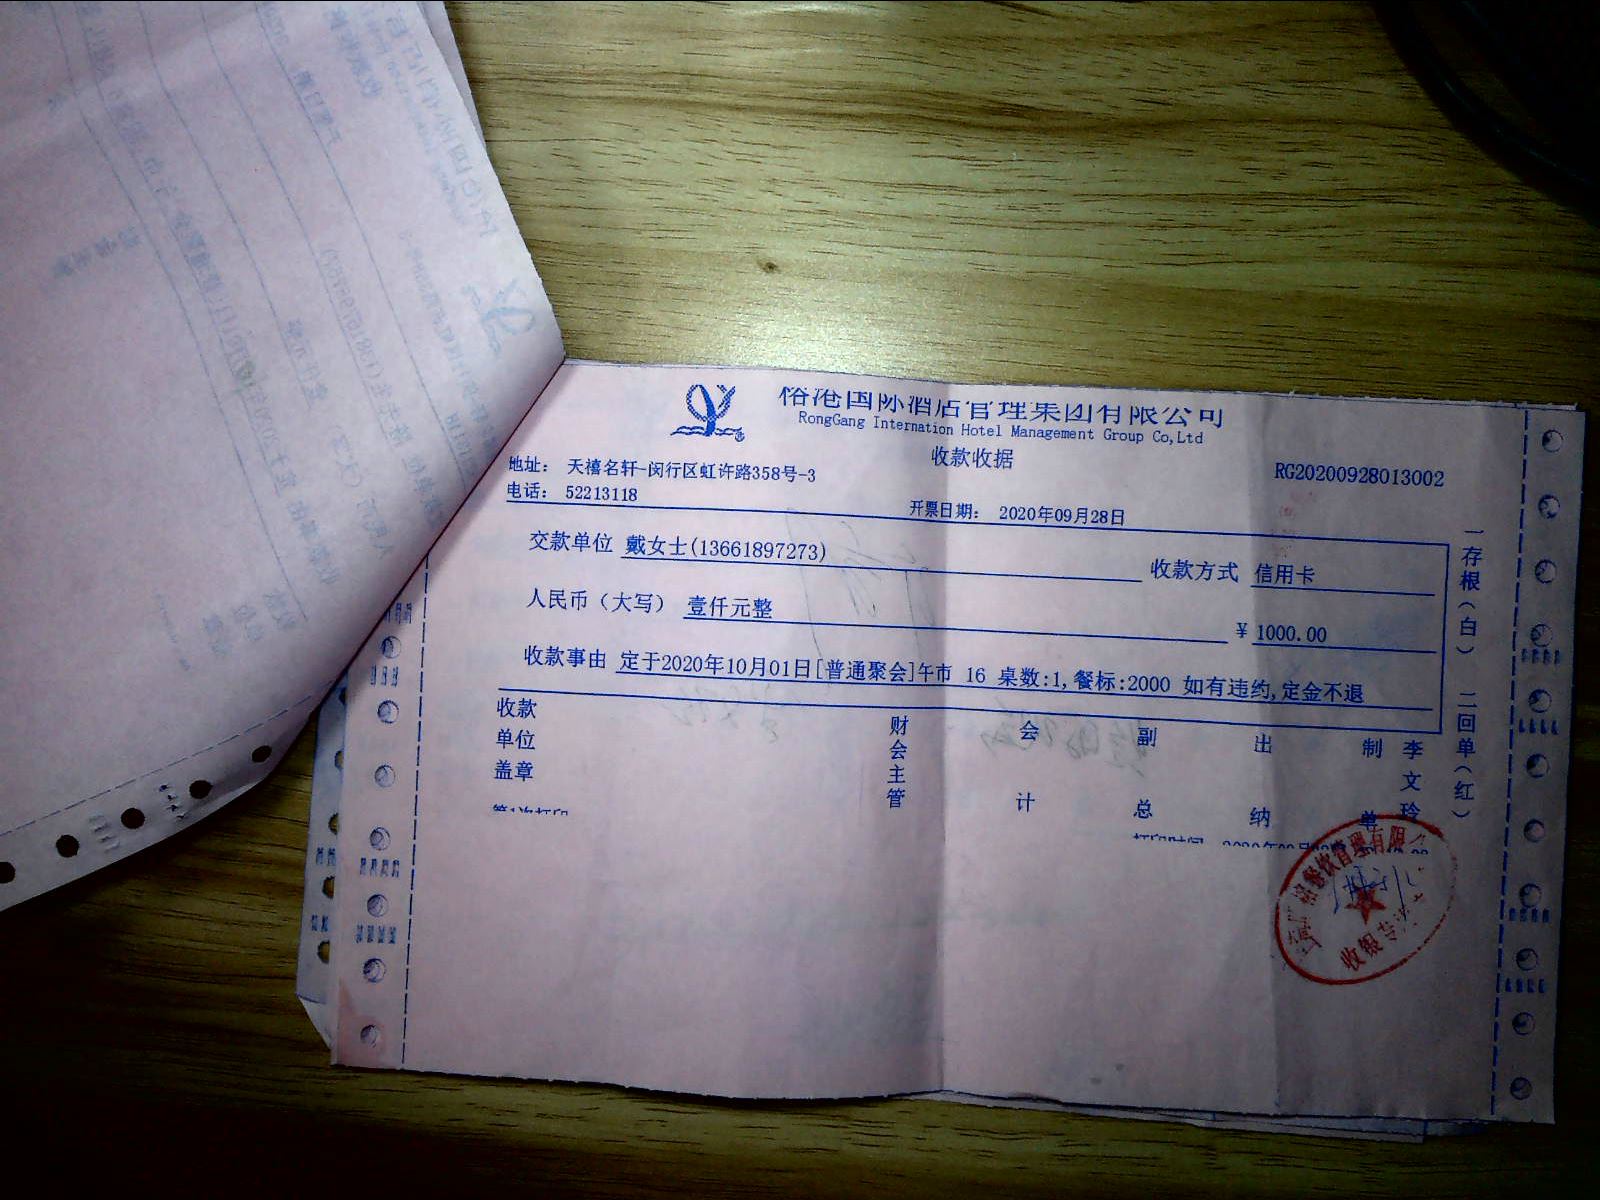 榕港国际酒店管理集团有限公司
RongGang Internation Hotel Management Group Co,Ltd
收款收据
地址: 天禧名轩-闵行区虹许路358号-3
RG20200928013002
电话: 52213118
开票日期: 2020年09月28日
交款单位 戴女士(13661897273)
收款方式 信用卡
人民币(大写) 壹仟元整
¥ 1000.00
收款事由 定于2020年10月01日[普通聚会]午市 16 桌数:1,餐标:2000 如有违约,定金不退
收款单位盖章
财会主管
会计
副总
出纳
制单
李文玲
一存根(白) 二回单(红)
第1次打印
餐饮管理有限
收银专